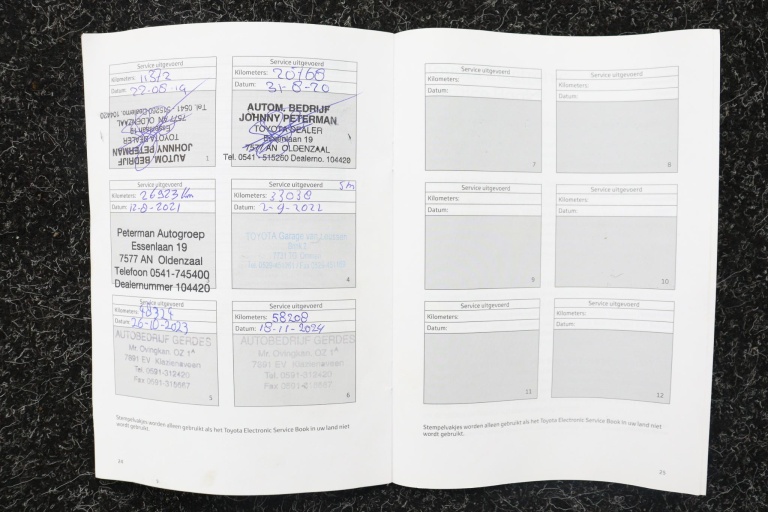 Service uitgevoerd
Kilometers: 11372
Datum: 22-08-19
AUTOM. BEDRIJF
JOHNNY PETERMAN
TOYOTA DEALER
Essenlaan 19
7577 AN OLDENZAAL
Tel. 0541 - 515260 Dealerno. 104420
1
Service uitgevoerd
Kilometers: 20768
Datum: 31-8-20
AUTOM. BEDRIJF
JOHNNY PETERMAN
TOYOTA DEALER
Essenlaan 19
7577 AN OLDENZAAL
Tel. 0541 - 515260 Dealerno. 104420
Service uitgevoerd
Kilometers: 26923 km
Datum: 12-8-2021
Peterman Autogroep
Essenlaan 19
7577 AN Oldenzaal
Telefoon 0541-745400
Dealernummer 104420
Service uitgevoerd
Kilometers: 33038
Datum: 2-9-2022
TOYOTA Garage
4
Service uitgevoerd
Kilometers: 48324
Datum: 26-10-2023
AUTOBEDRIJF GERDES
Mr. Ovingkan. OZ 1A
7891 EV Klazienaveen
Tel. 0591-312420
Fax 0591-315667
5
Service uitgevoerd
Kilometers: 58208
Datum: 18-11-2024
AUTOBEDRIJF GERDES
Mr. Ovingkan. OZ 1A
7891 EV Klazienaveen
Tel. 0591-312420
Fax 0591-315667
6
Stempelvakjes worden alleen gebruikt als het Toyota Electronic Service Book in uw land niet
wordt gebruikt.
Service uitgevoerd
Kilometers:
Datum:
7
Service uitgevoerd
Kilometers:
Datum:
8
Service uitgevoerd
Kilometers:
Datum:
9
Service uitgevoerd
Kilometers:
Datum:
10
Service uitgevoerd
Kilometers:
Datum:
11
Service uitgevoerd
Kilometers:
Datum:
12
Stempelvakjes worden alleen gebruikt als het Toyota Electronic Service Book in uw land niet
wordt gebruikt.